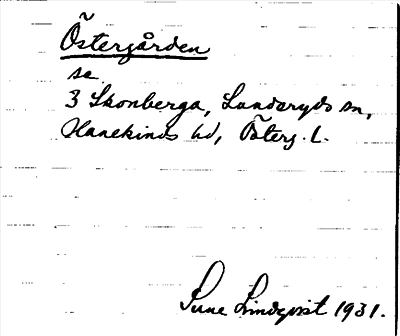 Östergården
se
3 Skonberga, Landeryds sn,
Hanekinds hd, Österg. L.
Sune Lindqvist 1931.